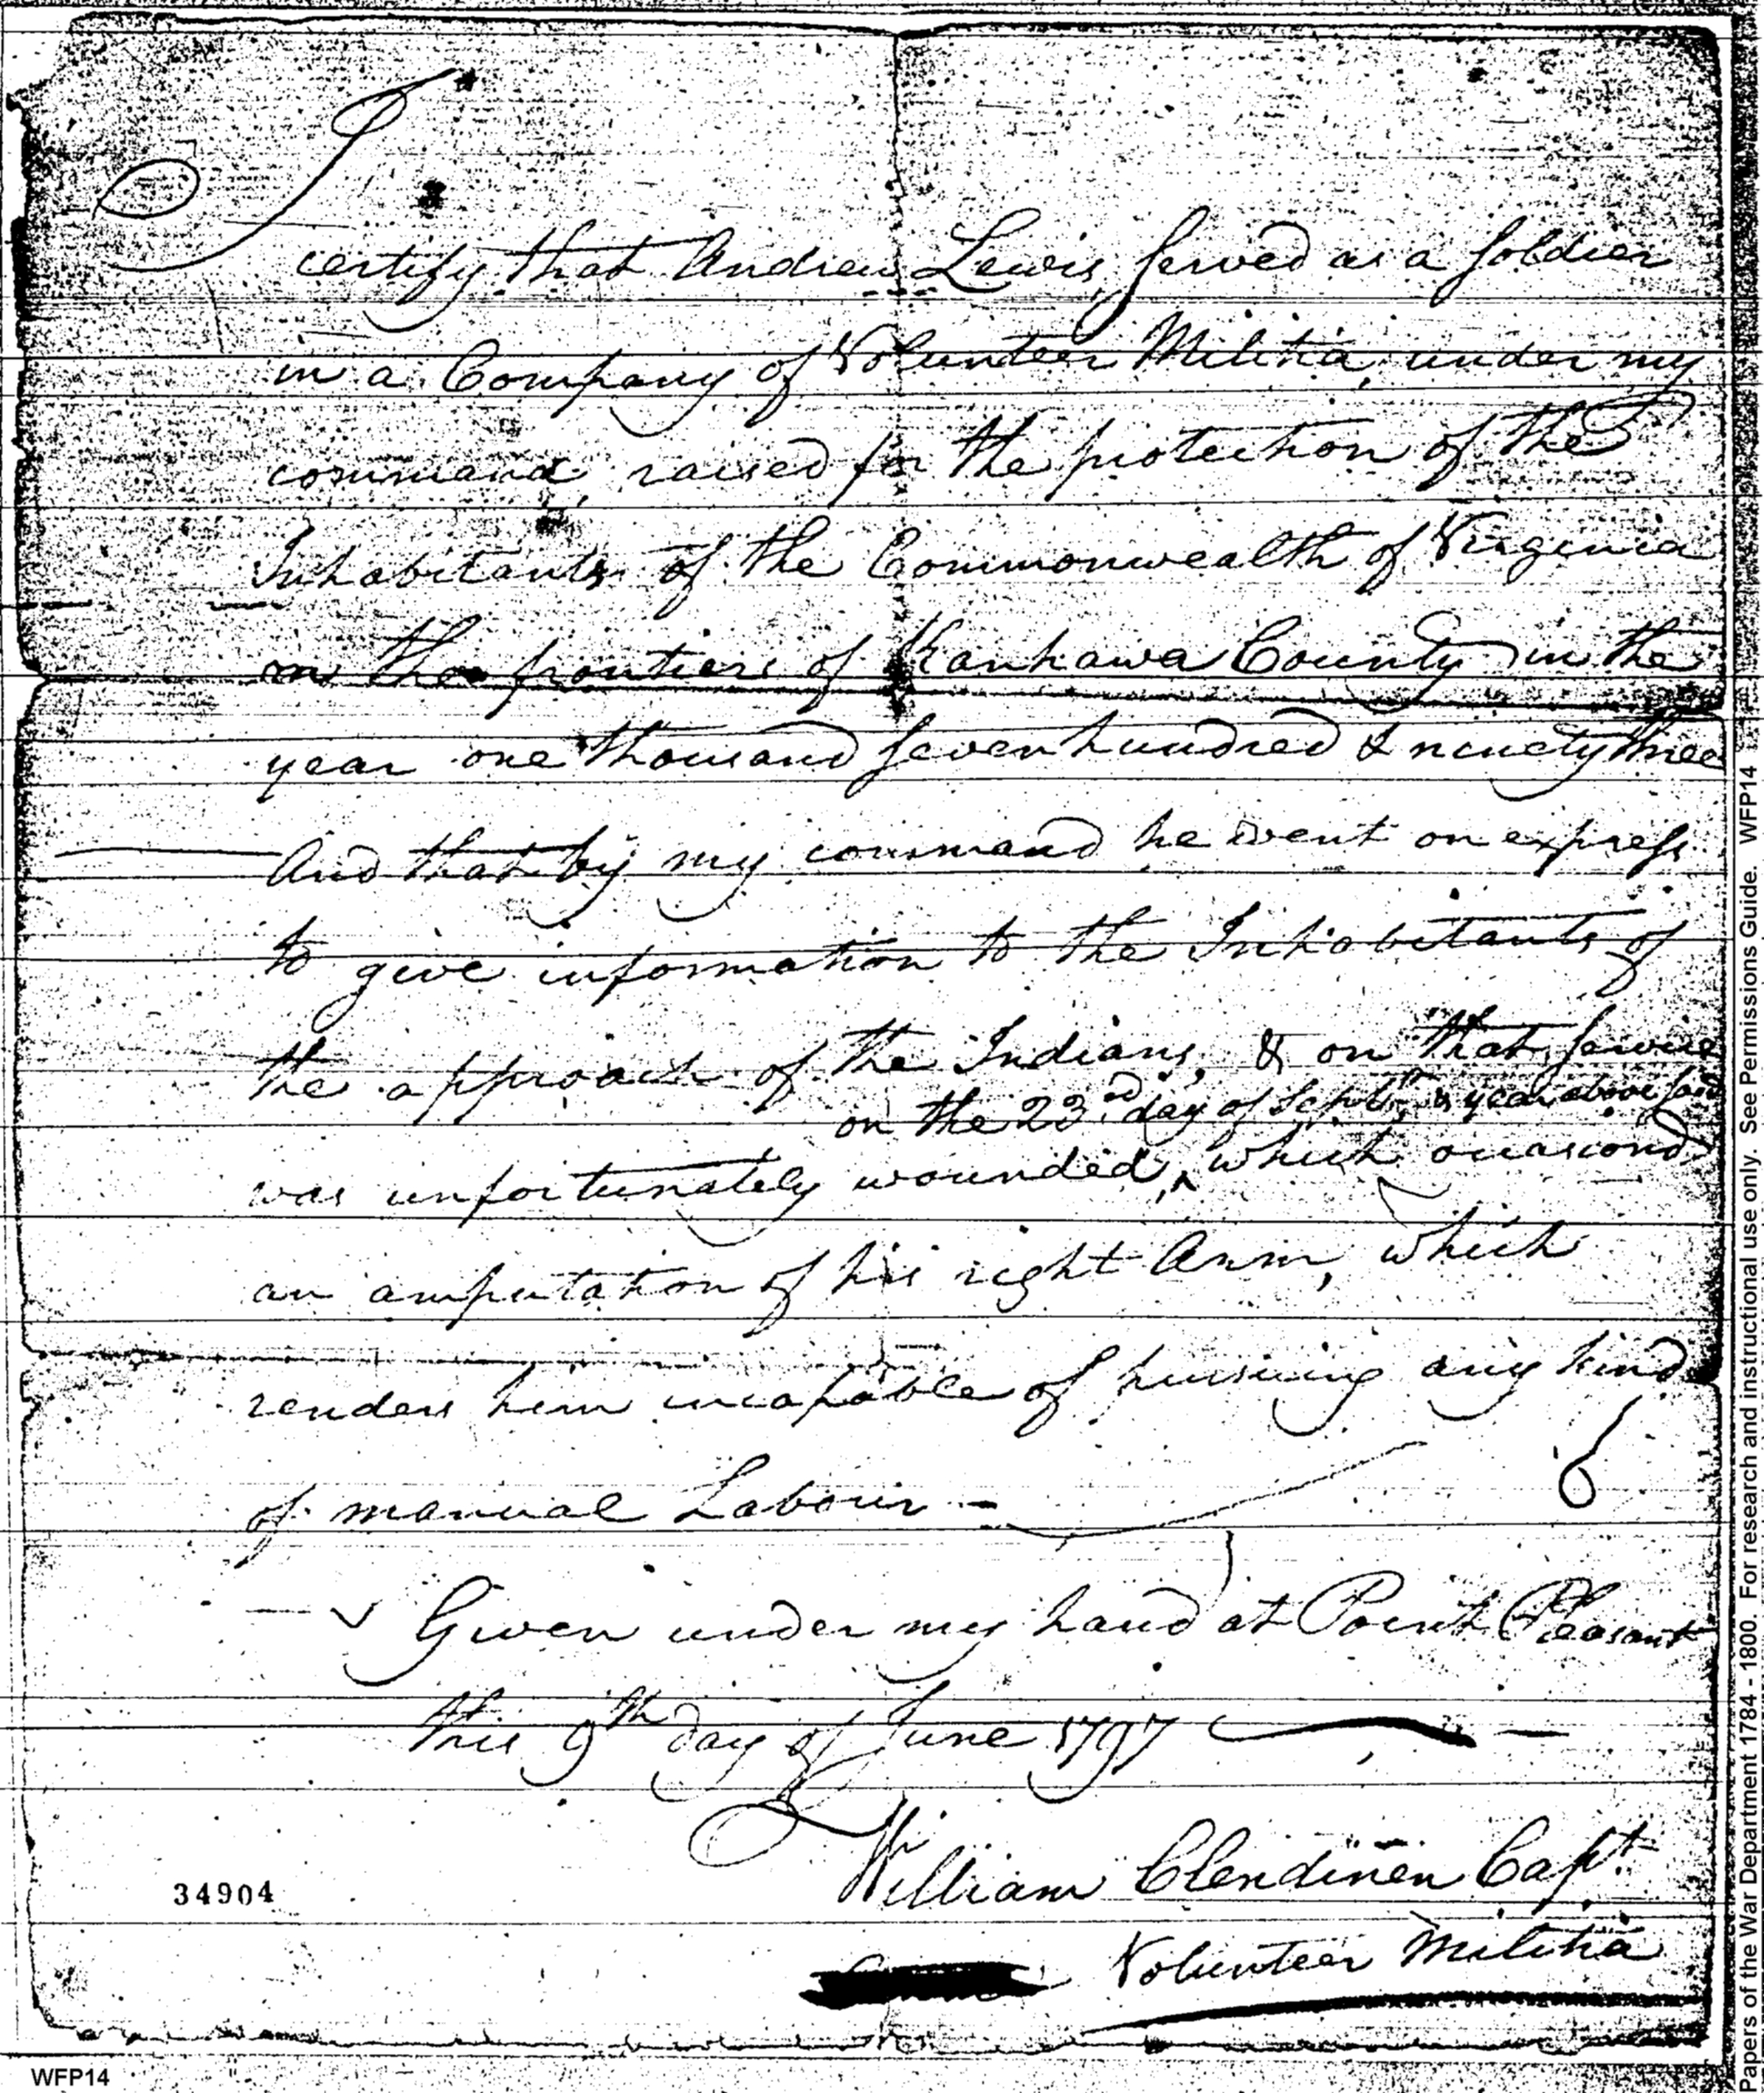 I
certify that Andrew Lewis served as a soldier
in a Company of Volunteer Militia, under my
command, raised for the protection of the
Inhabitants of the Commonwealth of Virginia
on the frontiers of Kanhawa County in the
year one thousand seven hundred & ninety three
And that by my command he went on express
to give information to the Inhabitants of
the approach of the Indians, & on that service
on the 23rd day of Septbr, & year above said
was unfortunately wounded, ^ which occasiond
an amputation of his right Arm, which
renders him incapable of pursuing any kind
of manual Labour -
Given under my hand at Point Pleasant
this 9th day of June 1797
William Clendinen Capt.
Volunteer Militia
34904
WFP14
Papers of the War Department 1784 - 1800. For research and instructional use only. See Permissions Guide. WFP14